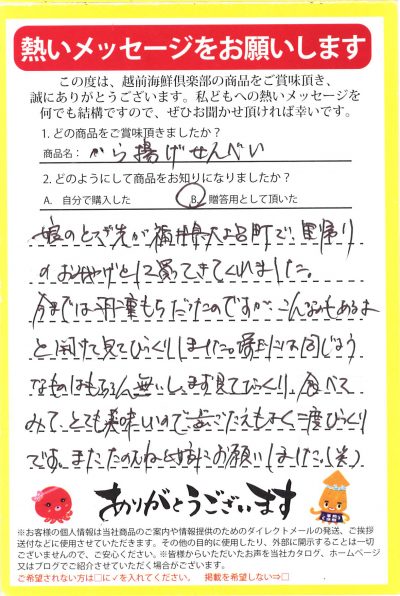 熱いメッセージをお願いします
この度は、越前海鮮倶楽部の商品をご賞味頂き、
誠にありがとうございます。私どもへの熱いメッセージを
何でも結構ですので、ぜひお聞かせ頂ければ幸いです。
1. どの商品をご賞味頂きましたか？
商品名： から揚げせんべい
2. どのようにして商品をお知りになりましたか？
A. 自分で購入した B. 贈答用として頂いた
娘のとつぎ先が福井県大 町で、里帰り
のおみやげとして買ってきてくれました。
今までは羽二重もちだったのですが、こんなのもあるよ
と開けて見てびっくりしました。埼玉には同じよう
なものはもちろん無いし、まず見てびっくり、食べて
みて、とても美味しいので歯ごたえもよく二度びっくり
です。またたのむねと娘にお願いしました。（笑）
ありがとうございます
※お客様の個人情報は当社商品のご案内や情報提供のためのダイレクトメールの発送、ご挨拶
送付などに使用させていただきます。その他の目的に使用したり、外部に開示することは一切
ございませんので、ご安心ください。※皆様からいただいたお声を当社カタログ、ホームページ
又はブログでご紹介させていただく場合がございます。
ご希望されない方は□に✓を入れてください。 掲載を希望しない⇒□